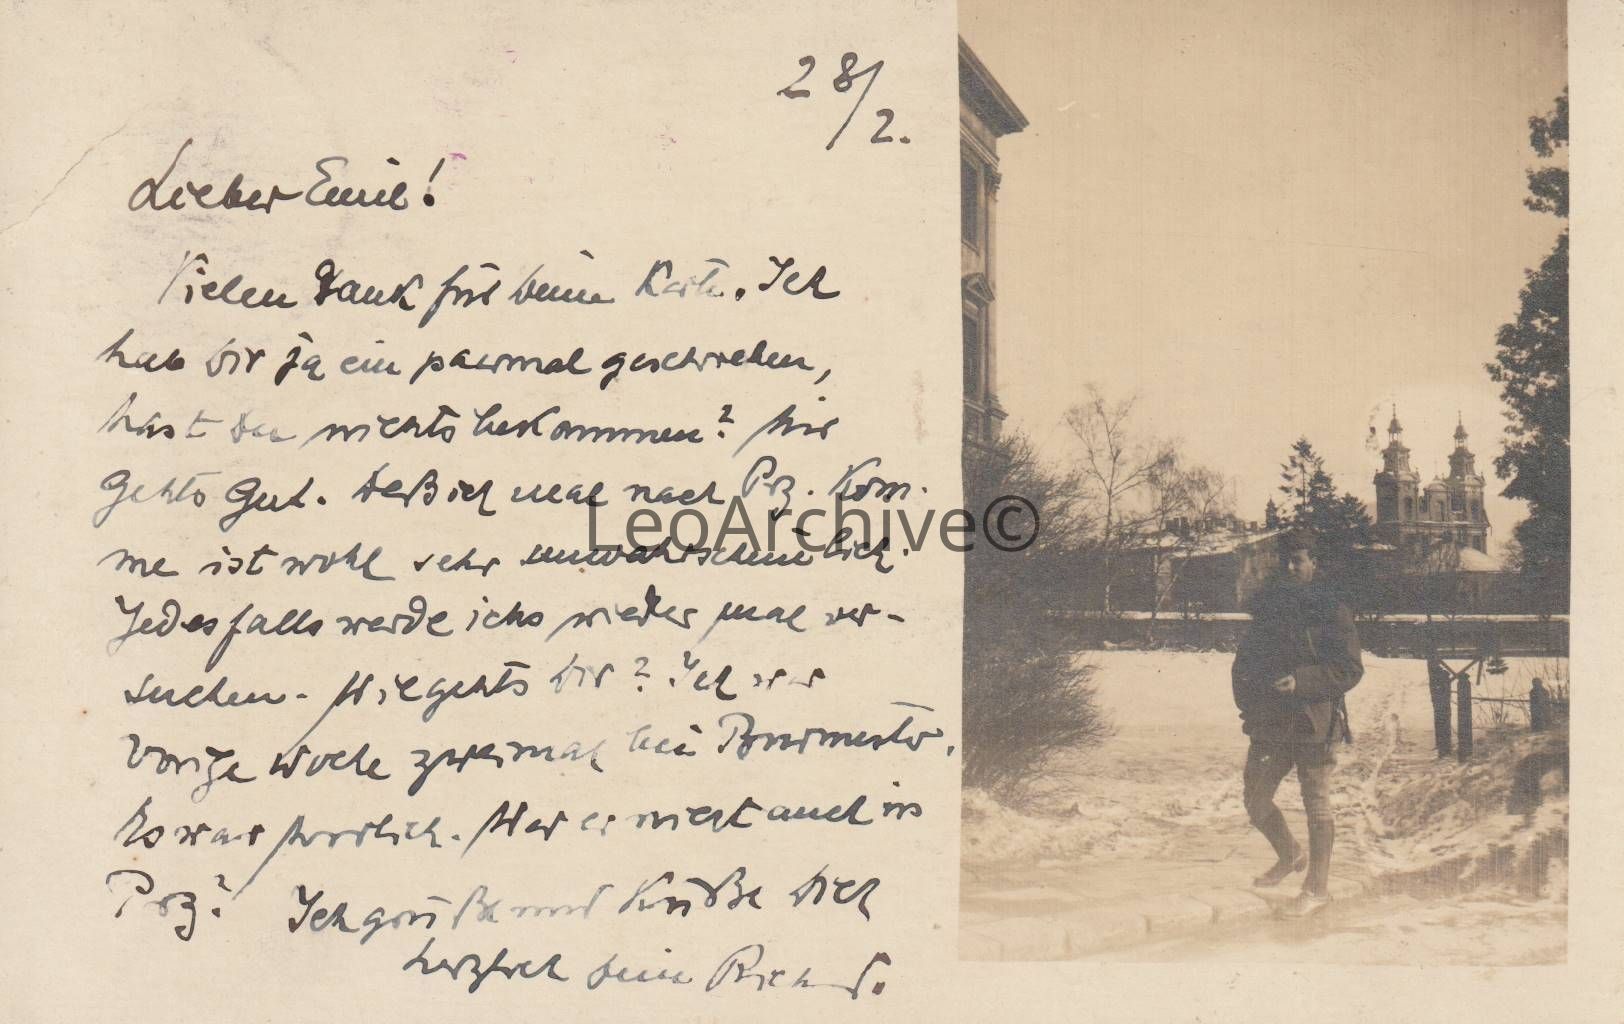 28/2.
Lieber Emil!
Vielen Dank für deine Karte. Ich
hab dir ja ein paarmal geschrieben,
hast du nichts bekommen? Mir
gehts gut. Daß ich mal nach Prz. kom-
me ist wohl sehr unwahrscheinlich.
Jedesfalls werde ichs wieder mal ver-
suchen. Wie gehts dir? Ich war
vorige Woche zweimal bei Burmester.
Es war herrlich. War er nicht auch in
Prz? Ich grüße und küße dich
herzlich dein Richard.
LeoArchive©